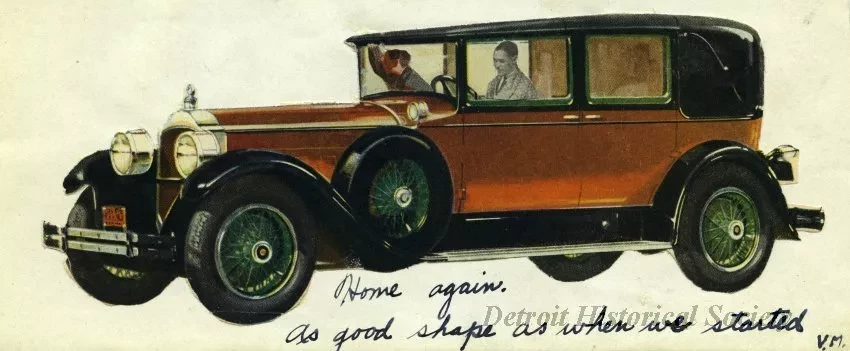 Home again.
as good shape as when we started
V.M.
Detroit Historical Society